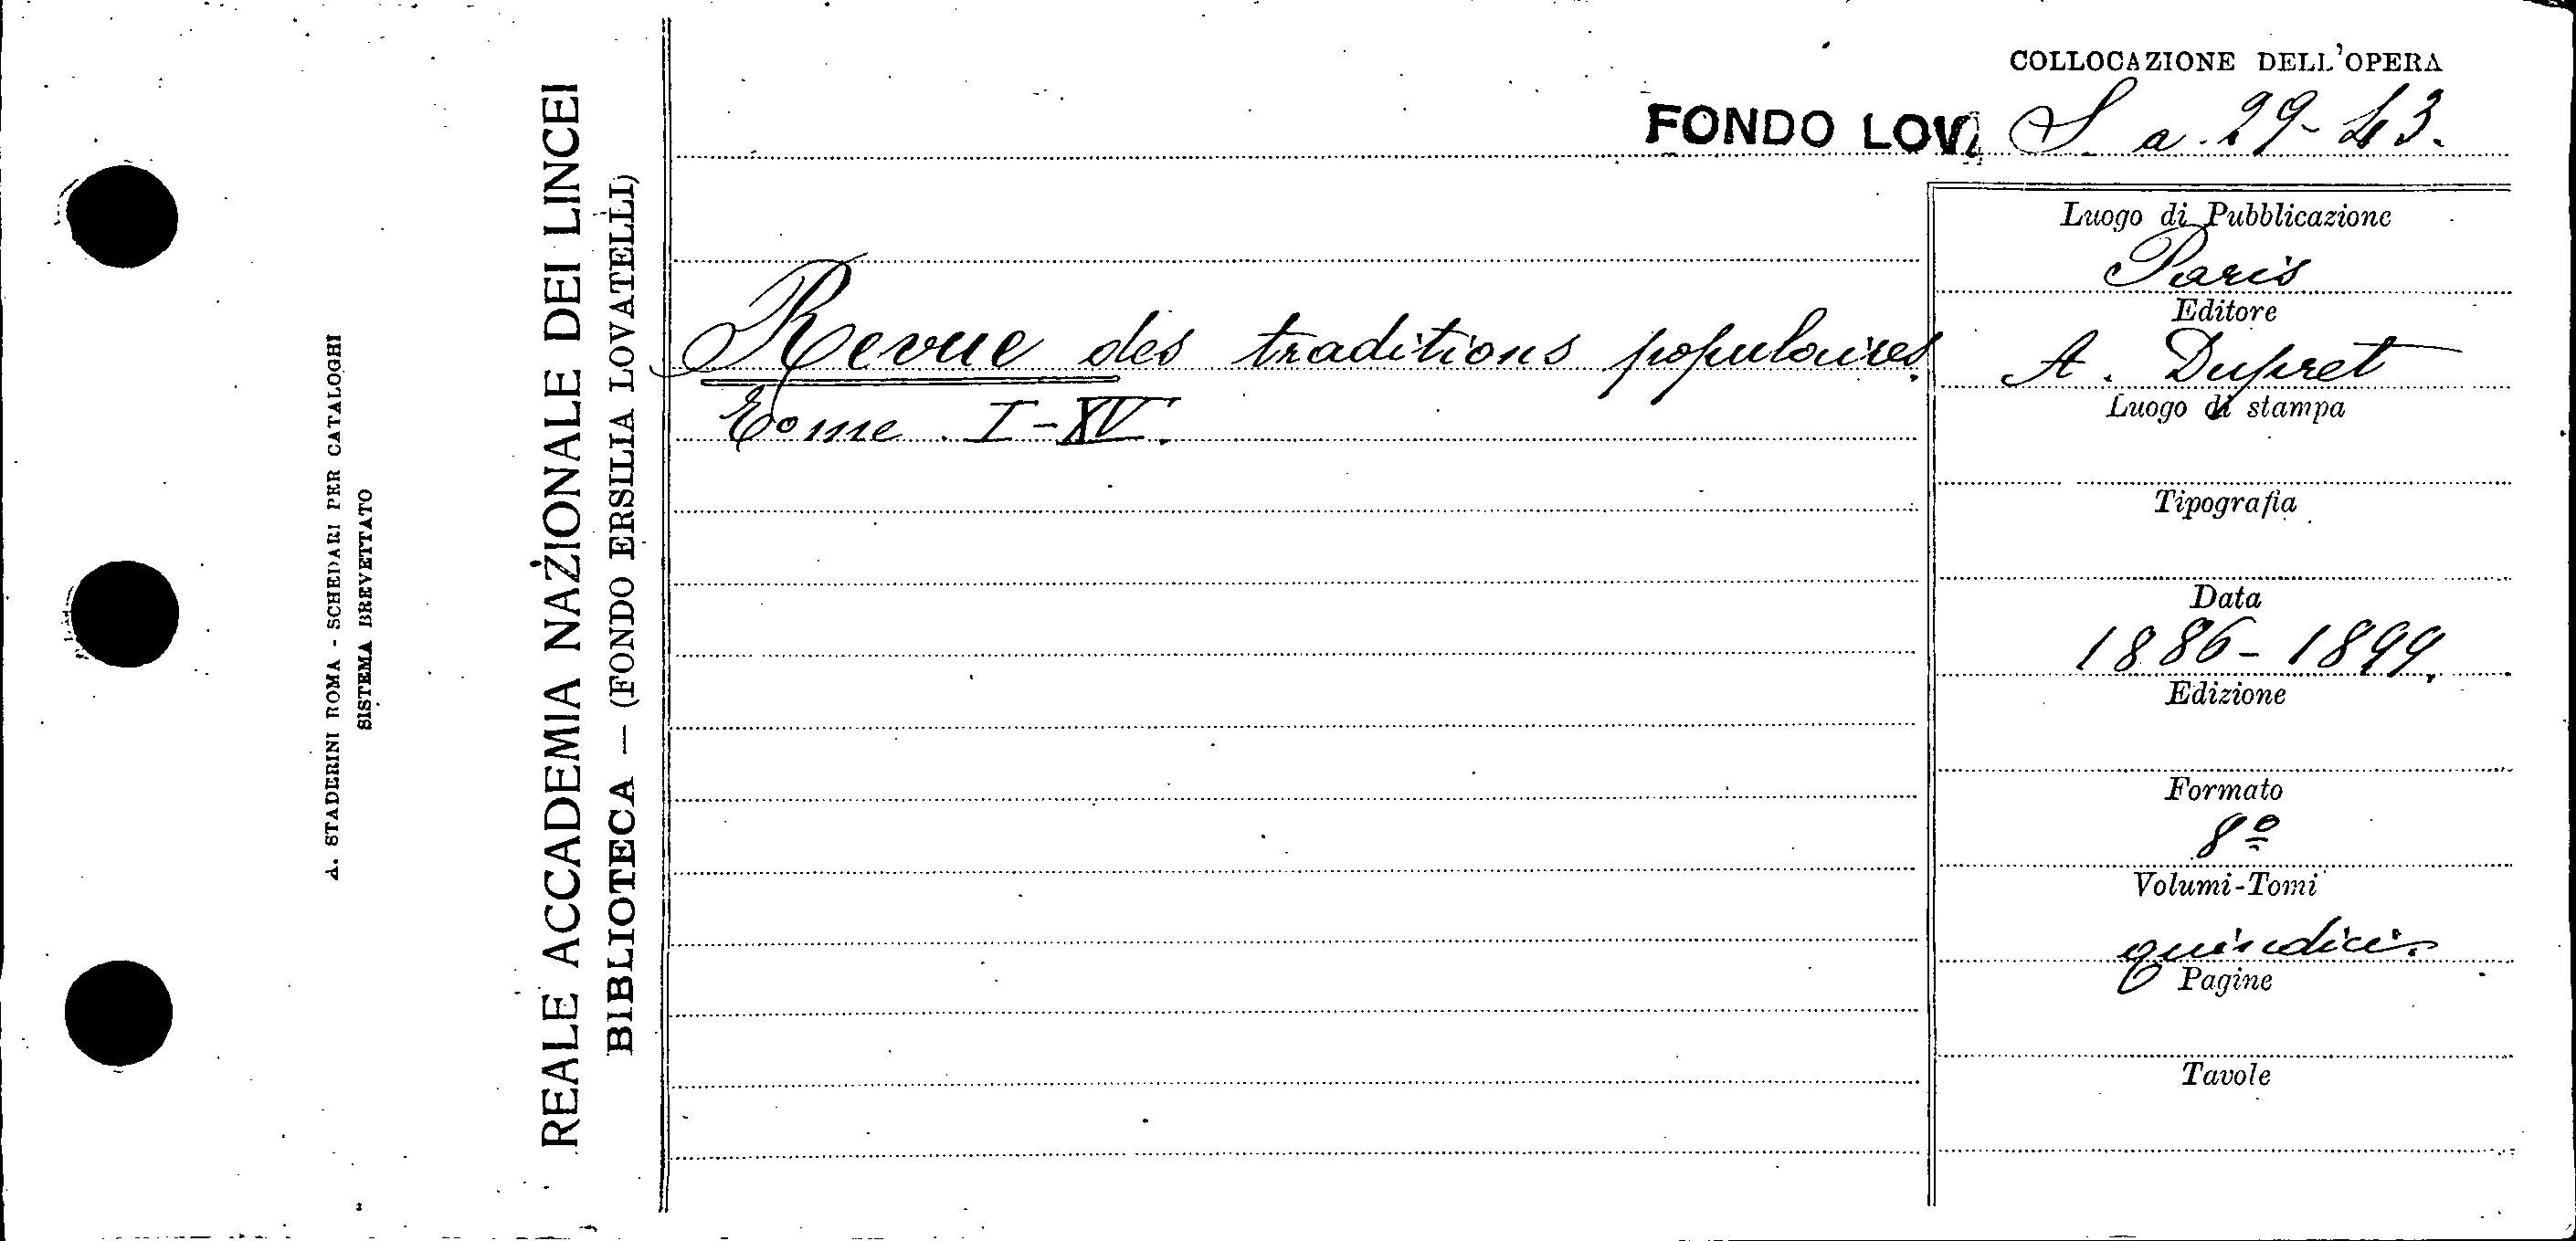 A. STADERINI ROMA - SCHEDARI PER CATALOGHI
SISTEMA BREVETTATO
REALE ACCADEMIA NAZIONALE DEI LINCEI
BIBLIOTECA — (FONDO ERSILIA LOVATELLI)
COLLOCAZIONE DELL'OPERA
FONDO LOV. S. a. 29-43.
Revue des traditions populaires.
Tome I-XV.
Luogo di Pubblicazione
Paris
Editore
A. Dupret
Luogo di stampa
Tipografia
Data
1886-1899.
Edizione
Formato
8º
Volumi-Tomi
quindici.
Pagine
Tavole